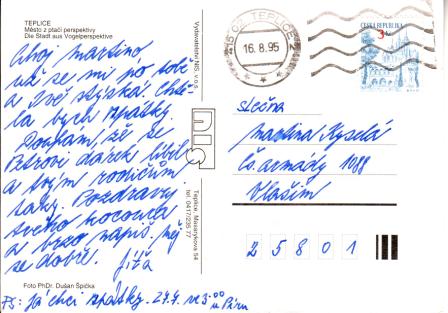 TEPLICE
Město z ptačí perspektivy
Die Stadt aus Vogelperspektive
Ahoj Martino,
už se mi po tobě
a Evě stýská. Chtě
la bych zpátky.
Doufám, že se
Petrovi dárek líbil
a tvým rodičům
taky. Pozdravuj
svého kocoura
a brzo napiš. Měj
se dobře. Jíťa
Foto PhDr. Dušan Špička
PS: Já chci zpátky. 27.7. ve 3:00 u
Vydavatelství NIS
Teplice, Masarykova 54
tel. 0417/235 77
415 02 TEPLICE 2
16.8.95
ČESKÁ REPUBLIKA
3
Slečna
Martina Kyselá
Čs. armády 1088
Vlašim
25801